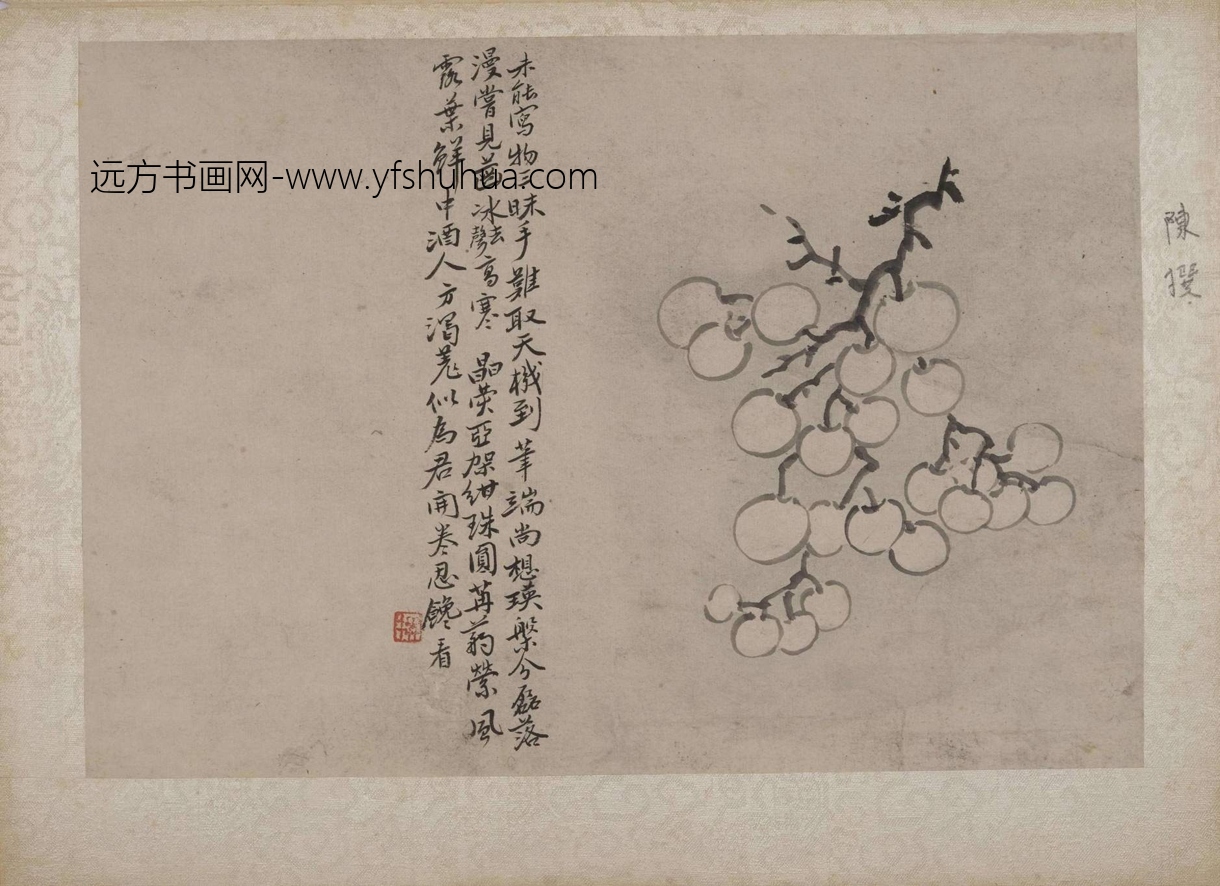 陳撰
未能寫物三昧手難取天機到筆端尚想瑛盤分磊落
漫嘗見齒冰聲去高寒 晶熒亞架紺珠圓苒蒻縈風
露葉鮮中酒人方渴羌似為君開卷忍饞看
远方书画网-www.yfshuhua.com